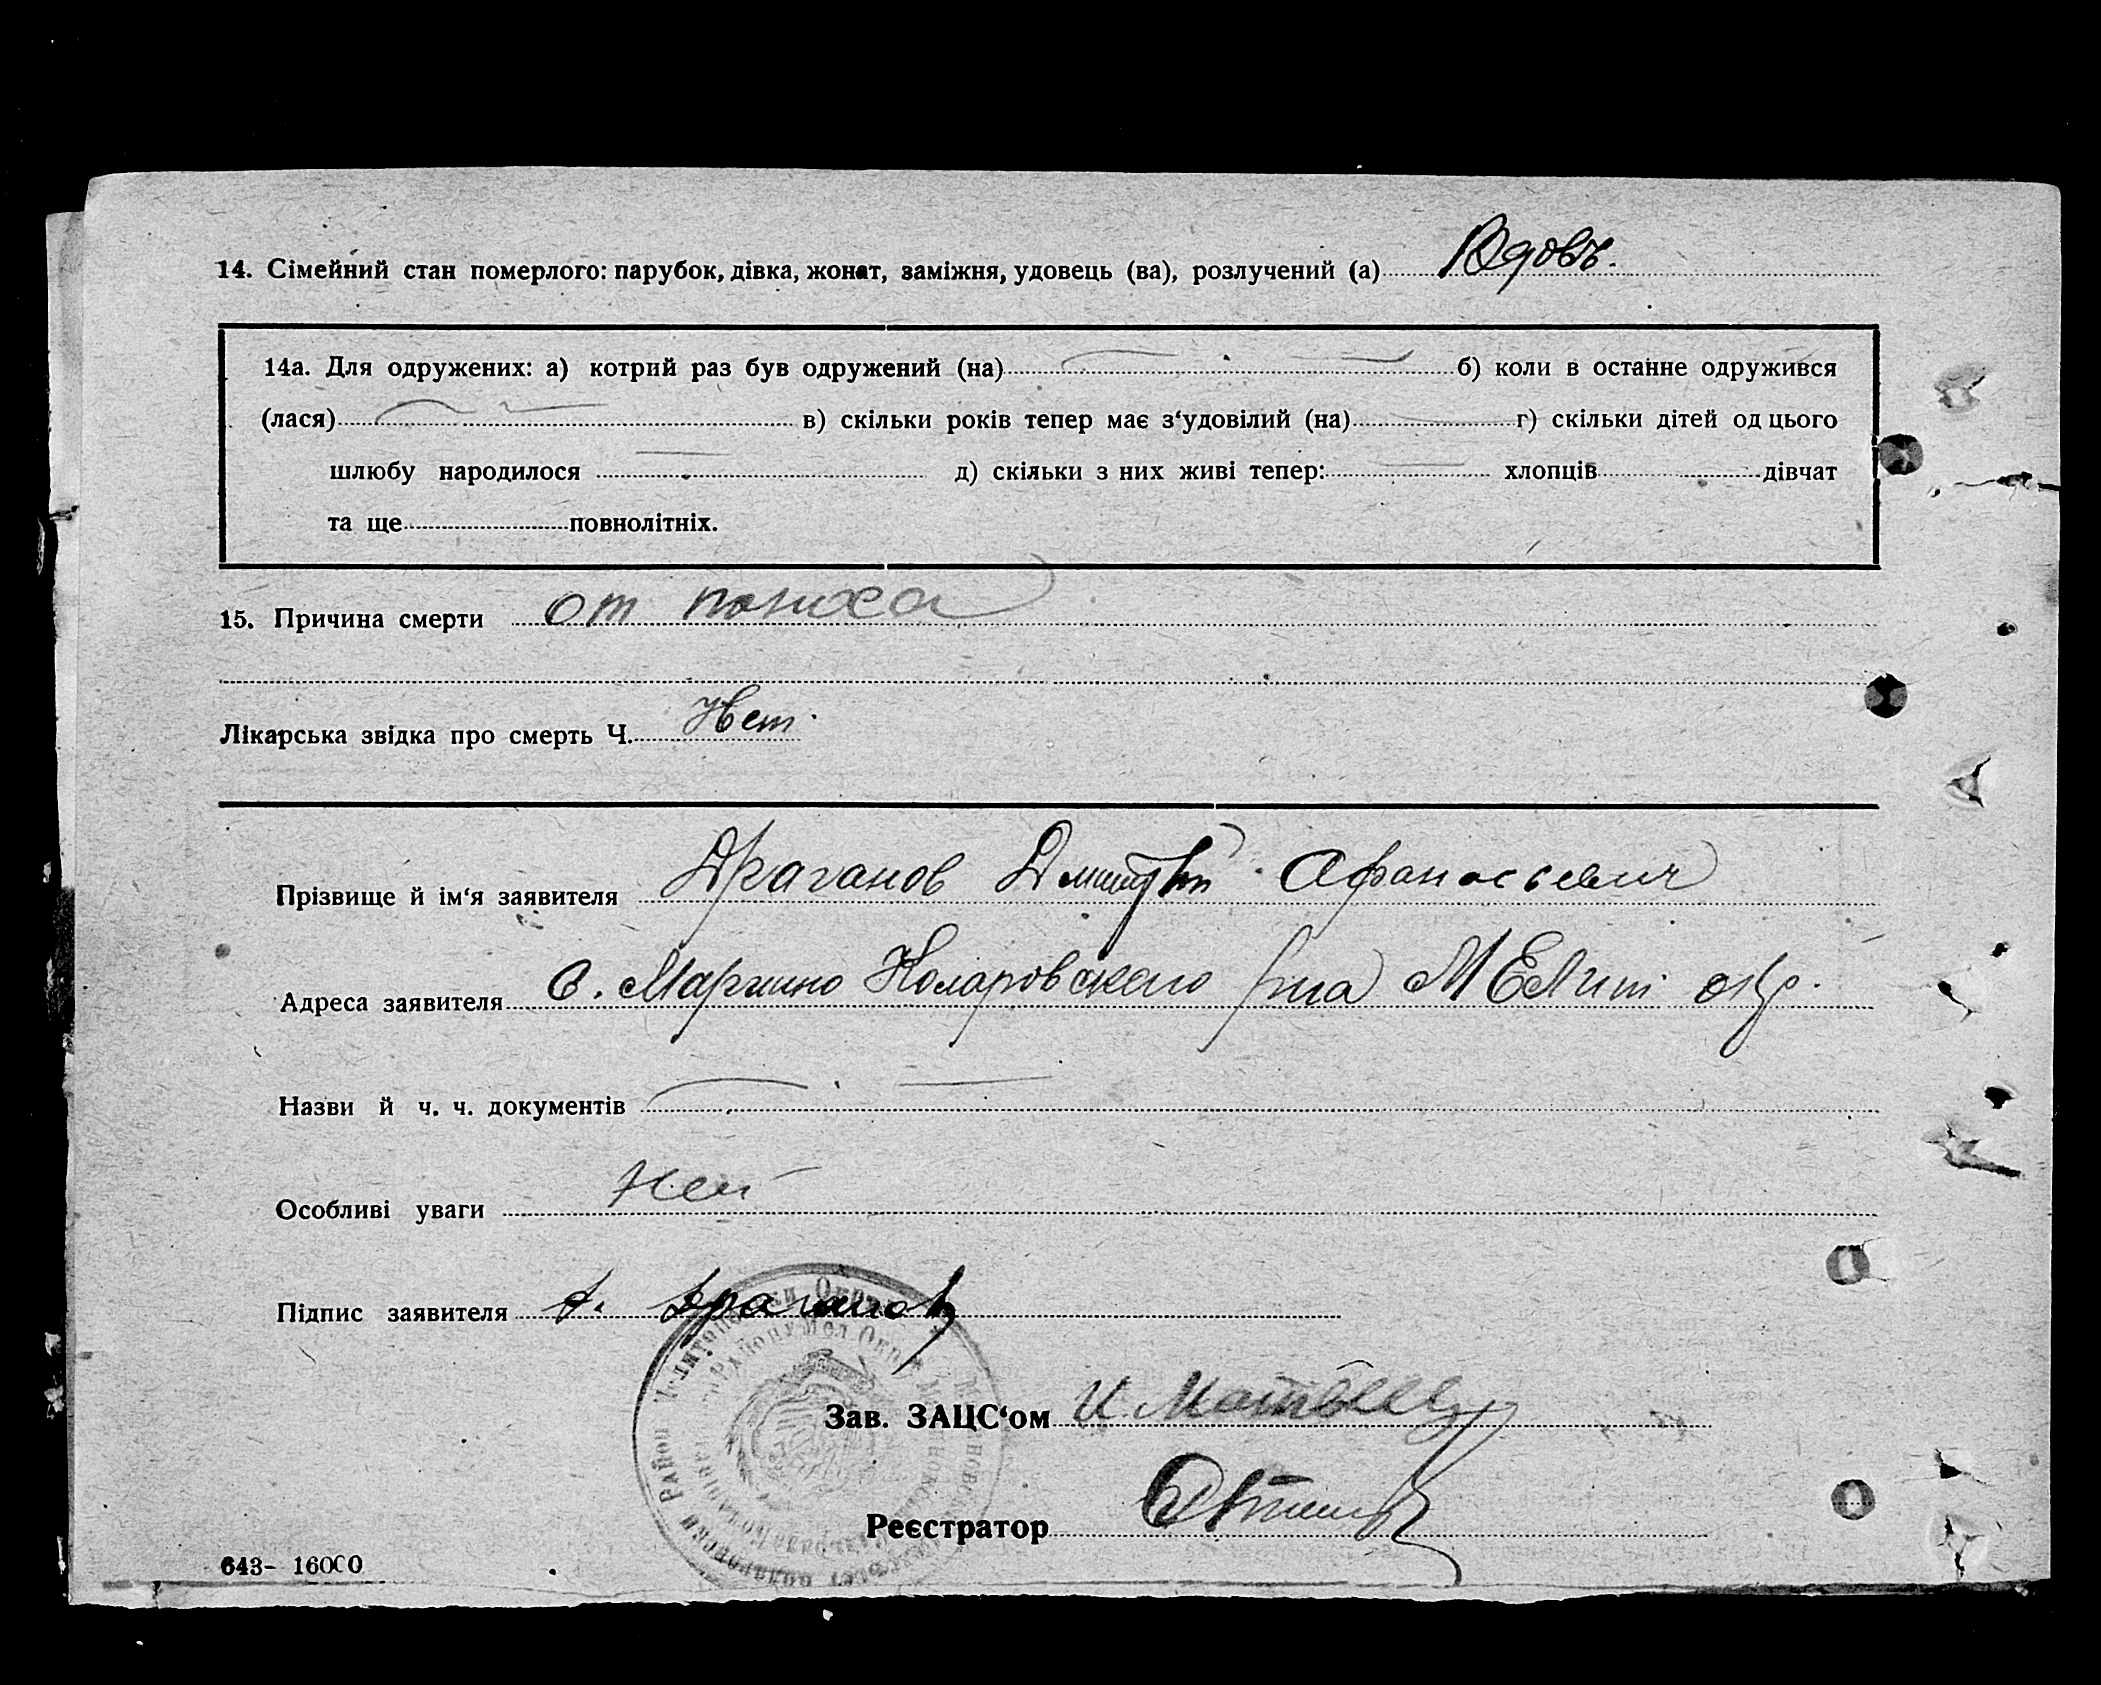 14. Сімейний стан померлого: парубок, дівка, жонат, заміжня, удовець (ва), розлучений (а) Вдовъ.
14а. Для одружених: а) котрий раз був одружений (на) б) коли в останнє одружився
(лася) в) скільки років тепер має з‘удовілий (на) г) скільки дітей од цього
шлюбу народилося д) скільки з них живі тепер: хлопців дівчат
та ще повнолітніх.
15. Причина смерти от поноса
Лікарська звідка про смерть Ч. Нет.
Прізвище й ім‘я заявителя Драганов Дмитрий Афанасьевич
Адреса заявителя с. Маргино Коларовского р-на МЕЛит окр.
Назви й ч. ч. документів
Особливі уваги Нет
Підпис заявителя Д. Драганов
Зав. ЗАЦС‘ом
Реєстратор
643- 16000